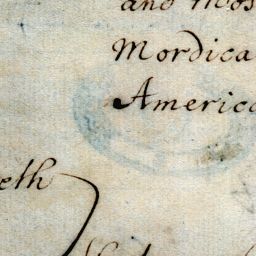 and Mos
Mordica
America
eth